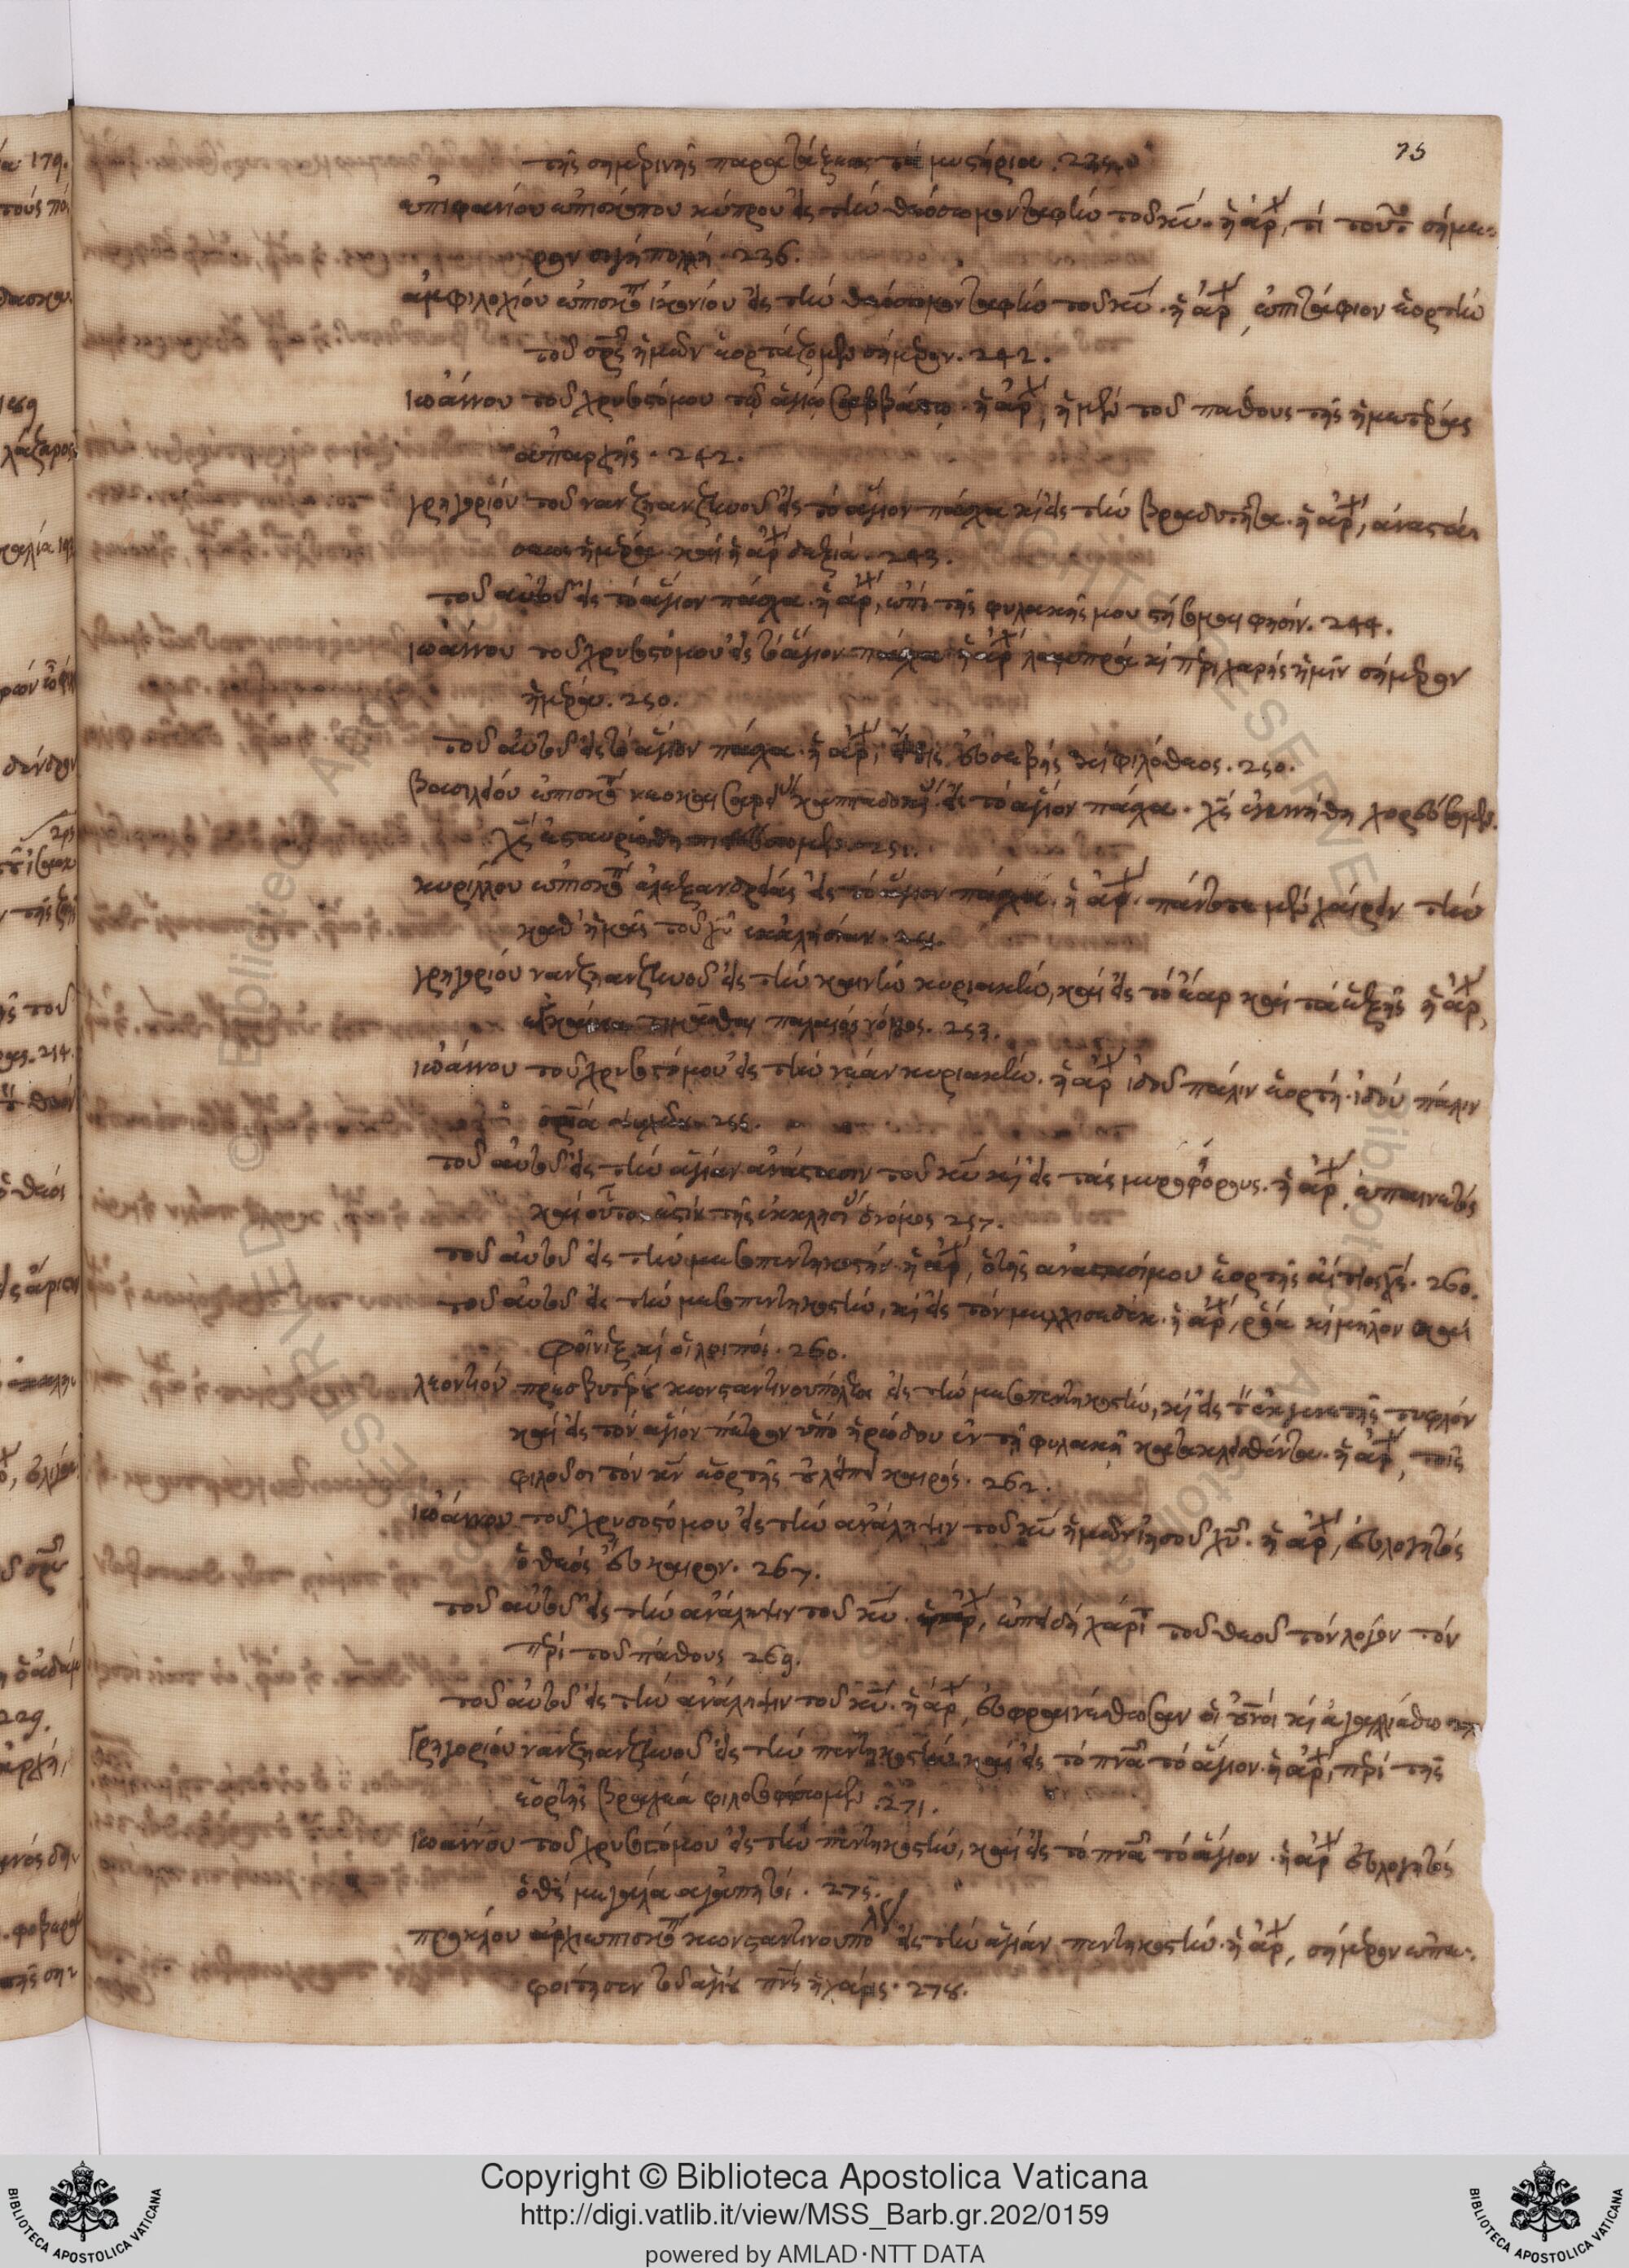 75
τῆς σημερινῆς παρατάξεως τὰ μυστήρια. 235.
ἐπιφανίου ἐπισκόπου κύπρου εἰς τὴν θεόσωμον ταφὴν τοῦ κυ̅. ἡ ἀρχ, τί τοῦτο σήμε-
ρον σιγὴ πολλή. 236.
ἀμφιλοχίου ἐπισκοπ ἰκονίου εἰς τὴν θεόσωμον ταφὴν τοῦ κυ̅. ἡ ἀρχ, ἐπιτάφιον ἑορτὴν
τοῦ σρ̅ς ἡμῶν ἑορτάζομεν σήμερον. 242.
ἰωάννου τοῦ χρυσοστόμου τῷ ἁγίῳ σαββάτῳ. ἡ ἀρχ, ἡ μὲν τοῦ πάθους τῆς ἡμετέρας
ἀπαρχῆς. 242.
γρηγορίου τοῦ νανζηανζηνοῦ εἰς τὸ ἅγιον πάσχα κὶ εἰς τὴν βραδυτῆτα. ἡ ἀρχ, ἀναστά-
σεως ἡμέρα καὶ ἡ ἀρχ δεξιά. 243.
τοῦ αὐτοῦ εἰς τὸ ἅγιον πάσχα. ἡ ἀρχ, ἐπὶ τῆς φυλακῆς μου στήσομαι φησίν. 244.
ἰωάννου τοῦ χρυσοστόμου εἰς τὸ ἅγιον πάσχα. ἡ ἀρχ λαμπρὰ κὶ περιχαρὴς ἡμῖν σήμερον
ἡμέρα. 250.
τοῦ αὐτοῦ εἰς τὸ ἅγιον πάσχα. ἡ ἀρχ, εἴ τις εὐσεβὴς κὶ φιλόθεος. 250.
βασιλείου ἐπισκοπ νεοκαισαρείας καππαδοκίας εἰς τὸ ἅγιον πάσχα. χς̅ ἐγεννήθη χορεύσωμεν.
χς̅ ἐσταυρώθη 251.
κυρίλλου ἐπισκοπ ἀλεξανδρείας εἰς τὸ ἅγιον πάσχα. ἡ ἀρχ. πάντοτε μὲν χαίρειν τὴν
καθ' ἡμᾶς τοῦ χυ̅ ἐκκλησίαν.
γρηγορίου νανζηανζηνοῦ εἰς τὴν καινὴν κυριακὴν, καὶ εἰς τὸ ἔαρ καὶ τὰ ἑξῆς ἡ ἀρχ,
ἐγκαίνια τιμᾶσθαι παλαιὸς νόμος. 253.
ἰωάννου τοῦ χρυσοστόμου εἰς τὴν νέαν κυριακὴν. ἡ ἀρχ ἰδοὺ πάλιν ἑορτὴ. ἰδοὺ πάλιν
255.
τοῦ αὐτοῦ εἰς τὴν ἁγίαν ἀνάστασιν τοῦ κυ̅ κὶ εἰς τὰς μυροφόρους. ἡ ἀρχ, ἐπαινετὸς
καὶ οὗτος ἐστὶν τῆς ἐκκλησίας ὁ νόμος 257.
τοῦ αὐτοῦ εἰς τὴν μεσοπεντηκοστήν. ἡ ἀρχ, ὁ τῆς ἀναστασίμου ἑορτῆς αἴτιος χς̅. 260.
τοῦ αὐτοῦ εἰς τὴν μεσοπεντηκοστὴν, κὶ εἰς τὸν μελχισεδέκ. ἡ ἀρχ, ῥοιὰ κὶ μῆλον καὶ
φοῖνιξ κὶ οἱ λοιποί. 260.
λεοντίου πρεσβυτέρου κωνσταντινουπόλεως εἰς τὴν μεσοπεντηκοστὴν, κὶ εἰς τὸν ἐκ γενετῆς τυφλόν
καὶ εἰς τὸν ἅγιον πέτρον ὑπὸ ἡρώδου ἐν τῇ φυλακῇ κατακλεισθέντα. ἡ ἀρχ, τοῖς
φιλοῦσι τὸν κν̅ ἑορτῆς οὐ λείπει καιρός. 262.
ἰωάννου τοῦ χρυσοστόμου εἰς τὴν ἀνάληψιν τοῦ κυ̅ ἡμῶν ἰησοῦ χυ̅. ἡ ἀρχ, εὐλογητὸς
ὁ θεός εὔκαιρον. 267.
τοῦ αὐτοῦ εἰς τὴν ἀνάληψιν τοῦ κυ̅. ἡ ἀρχ, ἐπειδὴ χάριτι τοῦ θεοῦ τὸν λόγον τὸν
περὶ τοῦ πάθους 269.
τοῦ αὐτοῦ εἰς τὴν ἀνάληψιν τοῦ κυ̅. ἡ ἀρχ, εὐφραινέσθωσαν οἱ οὐνοὶ κὶ ἀγαλλιάσθω
Γρηγορίου νανζηανζηνοῦ εἰς τὴν πεντηκοστὴν καὶ εἰς τὸ πνα̅ τὸ ἅγιον. ἡ ἀρχ, περὶ τῆς
ἑορτῆς βραχέα φιλοσοφήσωμεν. 271.
ἰωάννου τοῦ χρυσοστόμου εἰς τὴν πεντηκοστὴν, καὶ εἰς τὸ πνα̅ τὸ ἅγιον. ἡ ἀρχ εὐλογητὸς
ὁ θς̅ μεγάλα ἀγαπητοί. 275.
πρόκλου ἀρχιεπισκοπ κωνσταντινουπόλ εἰς τὴν ἁγίαν πεντηκοστὴν. ἡ ἀρχ, σήμερον ἐπε-
φοίτησεν τοῦ ἁγίου πνς̅ ἡ χάρις. 278.
Copyright © Biblioteca Apostolica Vaticana
http://digi.vatlib.it/view/MSS_Barb.gr.202/0159
powered by AMLAD·NTT DATA